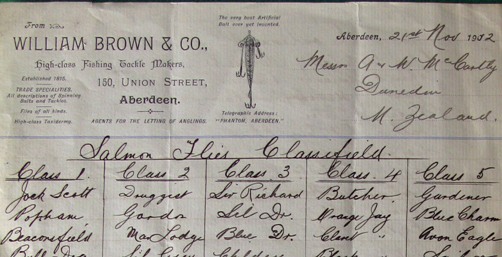 From
WILLIAM BROWN & CO.,
High-class Fishing Tackle Makers,
Established 1815.
150, UNION STREET,
Aberdeen.
TRADE SPECIALITIES.
All descriptions of Spinning
Baits and Tackles.
Flies of all kinds.
High-class Taxidermy.
AGENTS FOR THE LETTING OF ANGLINGS.
The very best Artificial
Bait ever yet invented.
Telegraphic Address:
"PHANTOM, ABERDEEN."
Aberdeen, 21st Nov 1912
Messrs A & W. McCarthy
Dunedin
N. Zealand.
Salmon Flies Classified.
Class 1. Class 2 Class 3 Class 4 Class 5
Jock Scott Druggist Sir Richard Butcher Gardener
Popham Gordon Sil Dr. Orange Jay Blue Charm
Beaconsfield Mar Lodge Blue Dr. Avon Eagle